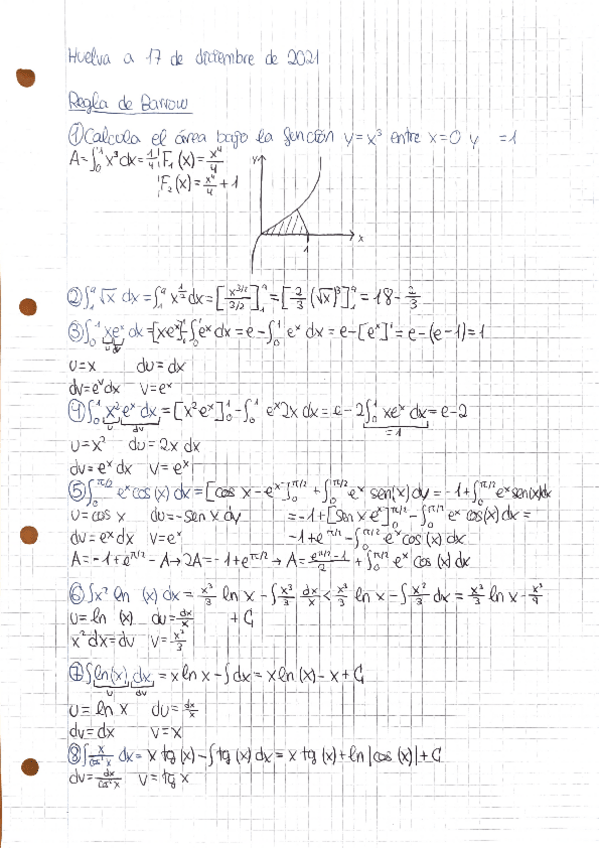 Huelva a 17 de diciembre de 2021
Regla de Barrow
① Calcula el área bajo la función y=x³ entre x=0 y =1
A=∫₀¹x³dx=1/4 F₁(x)=x⁴/4
F₂(x)=x⁴/4+1
y
x
1
② ∫₁⁹√x dx=∫₁⁹x^(1/2)dx=[x^(3/2)/(3/2)]₁⁹=[2/3(√x)³]₁⁹=18-2/3
③ ∫₀¹xeˣdx=[xeˣ]₀¹-∫₀¹eˣdx=e-∫₀¹eˣdx=e-[eˣ]¹=e-(e-1)=1
u dv
u=x du=dx
dv=eˣdx v=eˣ
④ ∫₀¹x²eˣdx=[x²eˣ]₀¹-∫₀¹eˣ2xdx=e-2∫₀¹xeˣdx=e-2
u dv =1
u=x² du=2x dx
dv=eˣdx v=eˣ
⑤ ∫₀^(π/2)eˣcos(x)dx=[cos x-eˣ]₀^(π/2)+∫₀^(π/2)eˣsen(x)dx=-1+∫₀^(π/2)eˣsen(x)dx
u=cos x du=-sen x dx =-1+[sen x eˣ]₀^(π/2)-∫₀^(π/2)eˣcos(x)dx=
dv=eˣdx v=eˣ -1+e^(π/2)-∫₀^(π/2)eˣcos(x)dx
A=-1+e^(π/2)-A→2A=-1+e^(π/2)→A=(e^(π/2)-1)/2+∫₀^(π/2)eˣcos(x)dx
⑥ ∫x²ln(x)dx=x³/3 ln x-∫x³/3 dx/x<x³/3 ln x-∫x²/3 dx=x³/3 ln x-x³/9
u=ln(x) du=dx/x +C
x²dx=dv v=x³/3
⑦ ∫ln(x)dx=x ln x-∫dx=x ln(x)-x+C
u dv
u=ln x du=dx/x
dv=dx v=x
⑧ ∫x/cos²x dx=x tg(x)-∫tg(x)dx=x tg(x)+ln|cos(x)|+C
dv=dx/cos²x v=tg x